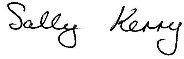 Sally Kerry